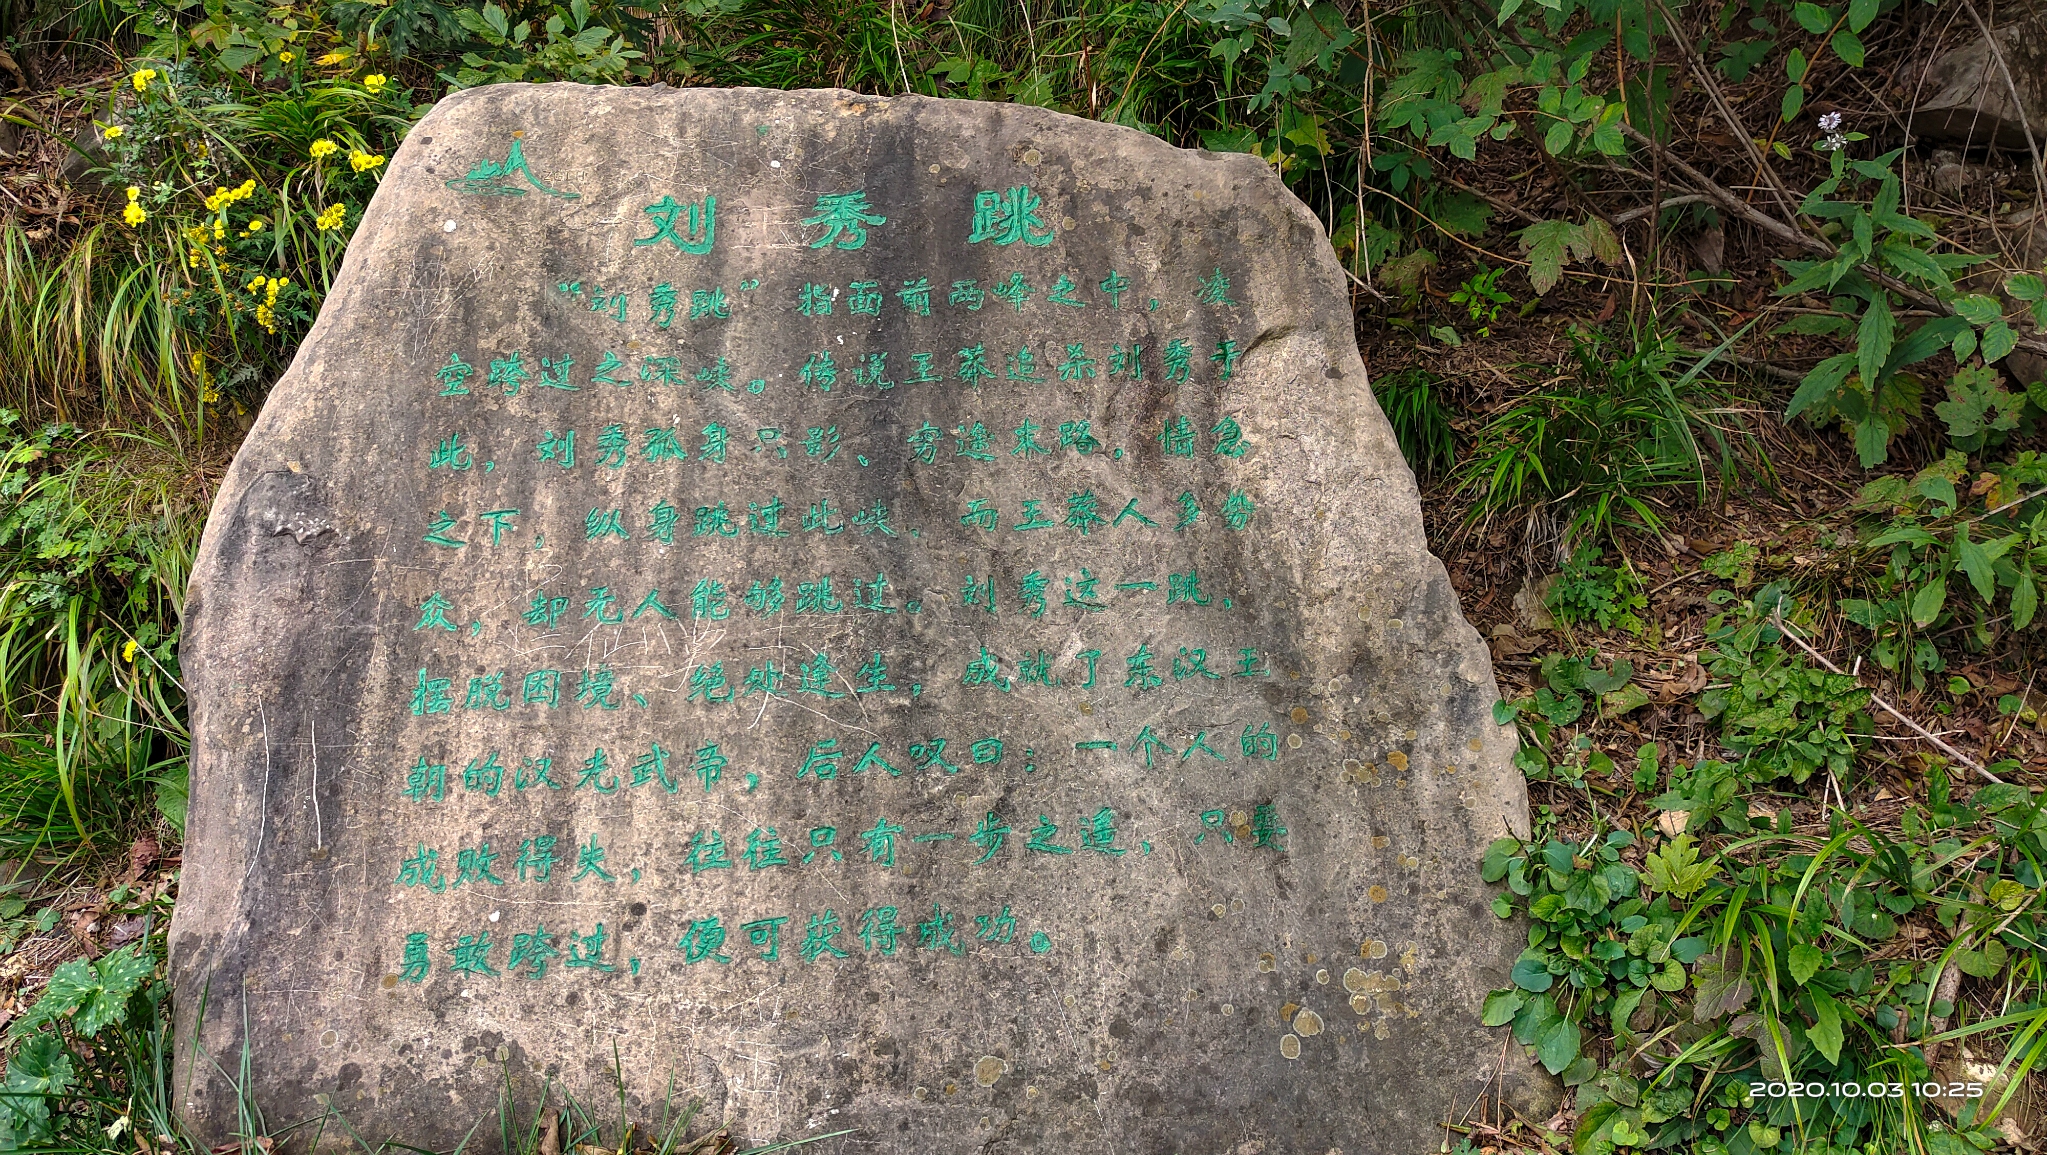 刘秀跳
“刘秀跳”指面前两峰之中，凌
空跨过之深峡。传说王莽追杀刘秀于
此，刘秀孤身只影、穷途末路，情急
之下，纵身跳过此峡。而王莽人多势
众，却无人能够跳过。刘秀这一跳，
摆脱困境、绝处逢生，成就了东汉王
朝的汉光武帝，后人叹曰：一个人的
成败得失，往往只有一步之遥，只要
勇敢跨过，便可获得成功。
2020.10.03 10:25